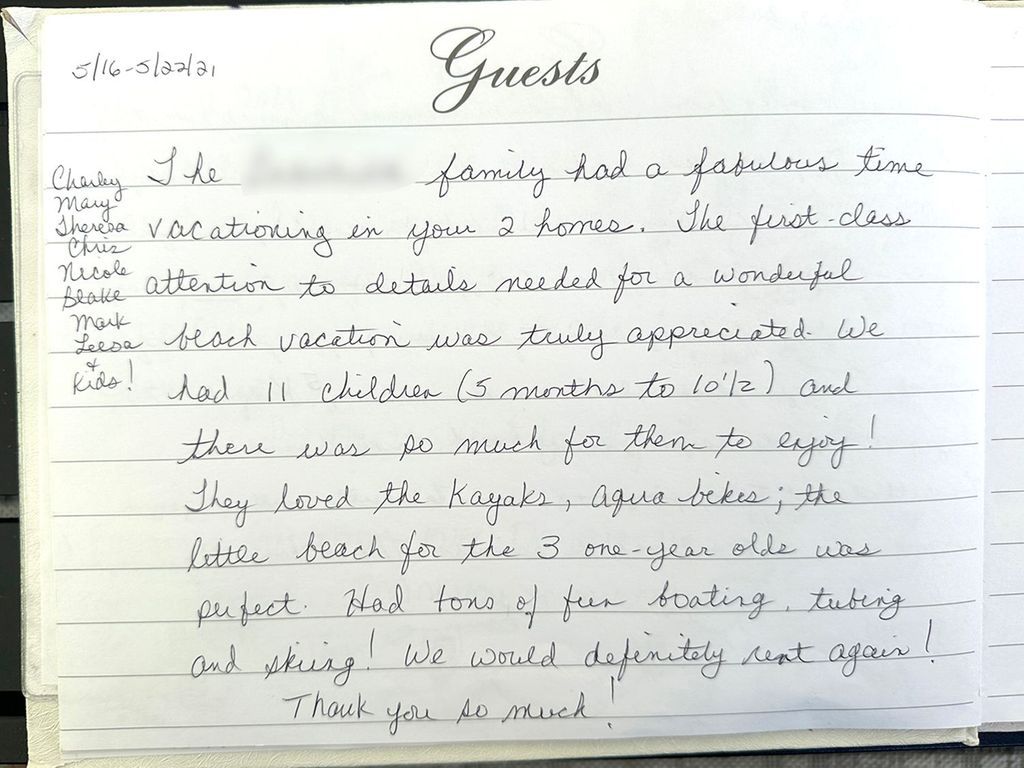 5/16-5/22/21
Guests
Charley
Mary
Theresa
Chris
Nicole
Blake
Mark
Leesa
+
Kids!
The family had a fabulous time
vacationing in your 2 homes. The first-class
attention to details needed for a wonderful
beach vacation was truly appreciated. We
had 11 children (5 months to 10 1/2) and
there was so much for them to enjoy!
They loved the Kayaks, aqua bikes; the
little beach for the 3 one-year olds was
perfect. Had tons of fun boating, tubing
and skiing! We would definitely rent again!
Thank you so much!